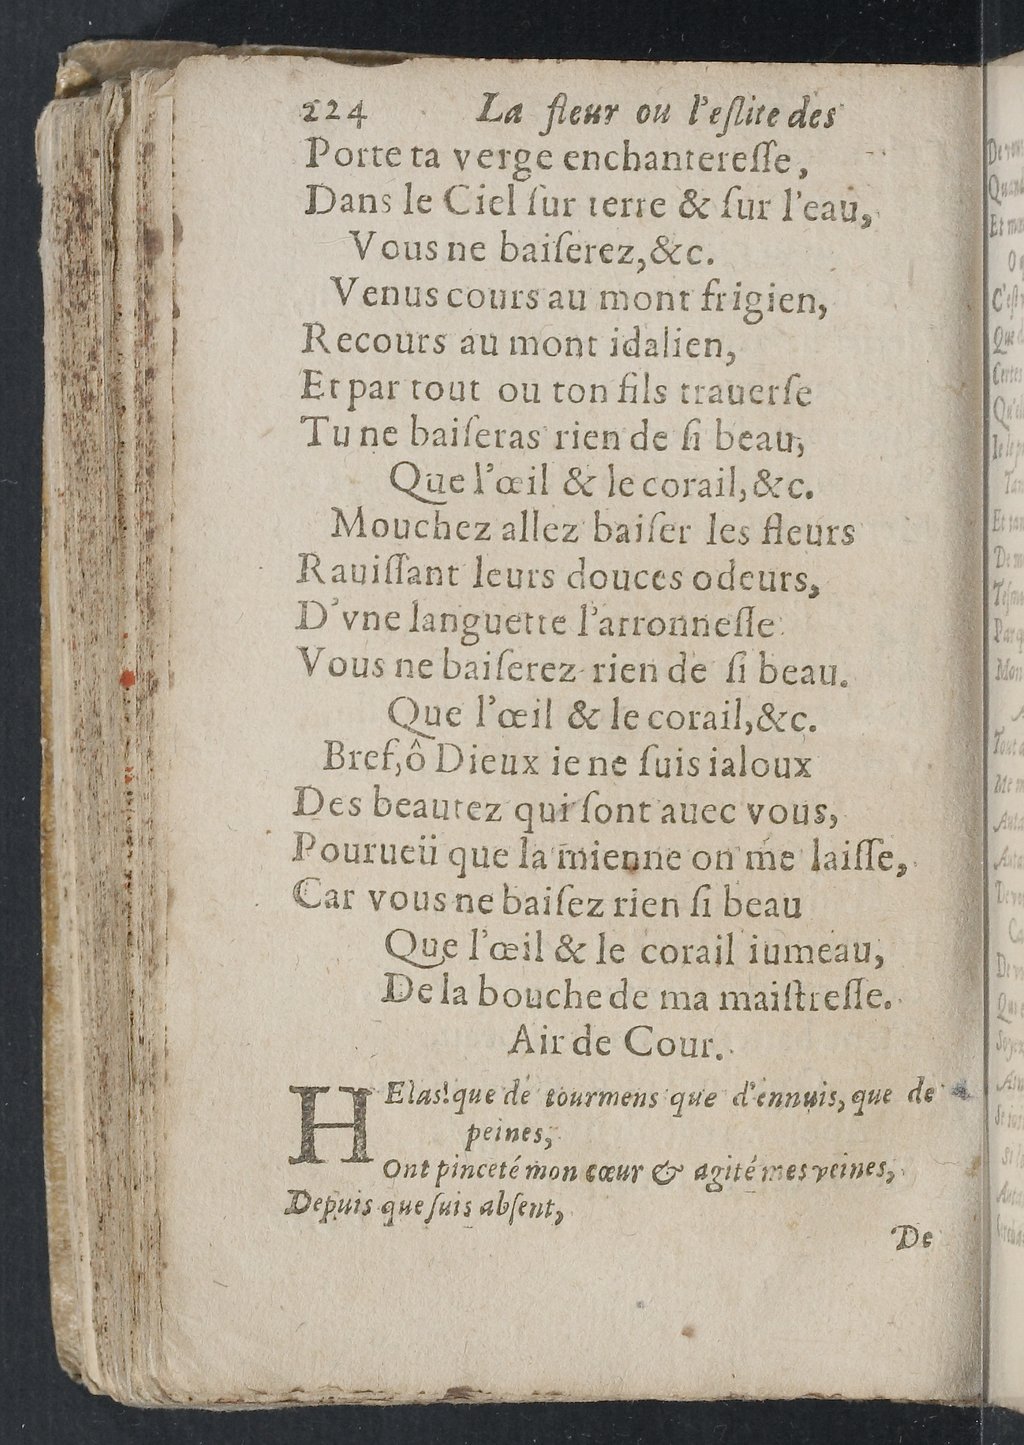 224 La fleur ou l'eſlite des
Porte ta verge enchantereſſe,
Dans le Ciel ſur terre & ſur l'eau,
Vous ne baiſerez,&c.
Venus cours au mont frigien,
Recours au mont idalien,
Et par tout ou ton fils trauerſe
Tu ne baiſeras rien de ſi beau,
Que l'œil & le corail,&c.
Mouchez allez baiſer les fleurs
Rauiſſant leurs douces odeurs,
D'vne languette l'arronneſſe
Vous ne baiſerez rien de ſi beau.
Que l'œil & le corail,&c.
Bref,ô Dieux ie ne ſuis ialoux
Des beautez qui ſont auec vous,
Pourueü que la mienne on me laiſſe,
Car vous ne baiſez rien ſi beau
Que l'œil & le corail iumeau,
De la bouche de ma maiſtreſſe.
Air de Cour.
HElas!que de tourmens que d'ennuis, que de
peines,
Ont pinceté mon cœur & agité mes veines,
Depuis que ſuis abſent,
De